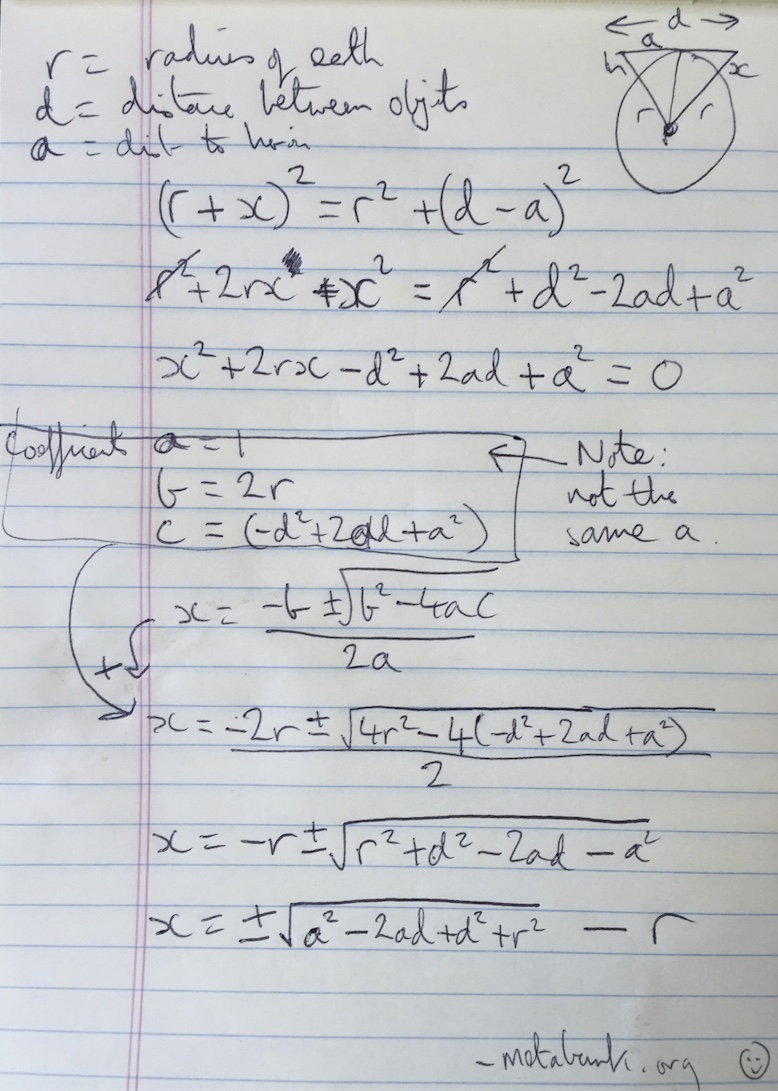 d
a
h x
r r
r = radius of eath
d = distance between objets
a = dist to horin
(r + x)² = r² + (d - a)²
r² + 2rx + x² = r² + d² - 2ad + a²
x² + 2rx - d² + 2ad + a² = 0
Coefficients a = 1
b = 2r
c = (-d² + 2ad + a²)
Note:
not the
same a.
x = (-b ± √(b² - 4ac)) / 2a
+
x = (-2r ± √(4r² - 4(-d² + 2ad + a²))) / 2
x = -r ± √(r² + d² - 2ad - a²)
x = ± √(a² - 2ad + d² + r²) - r
- metabunk.org